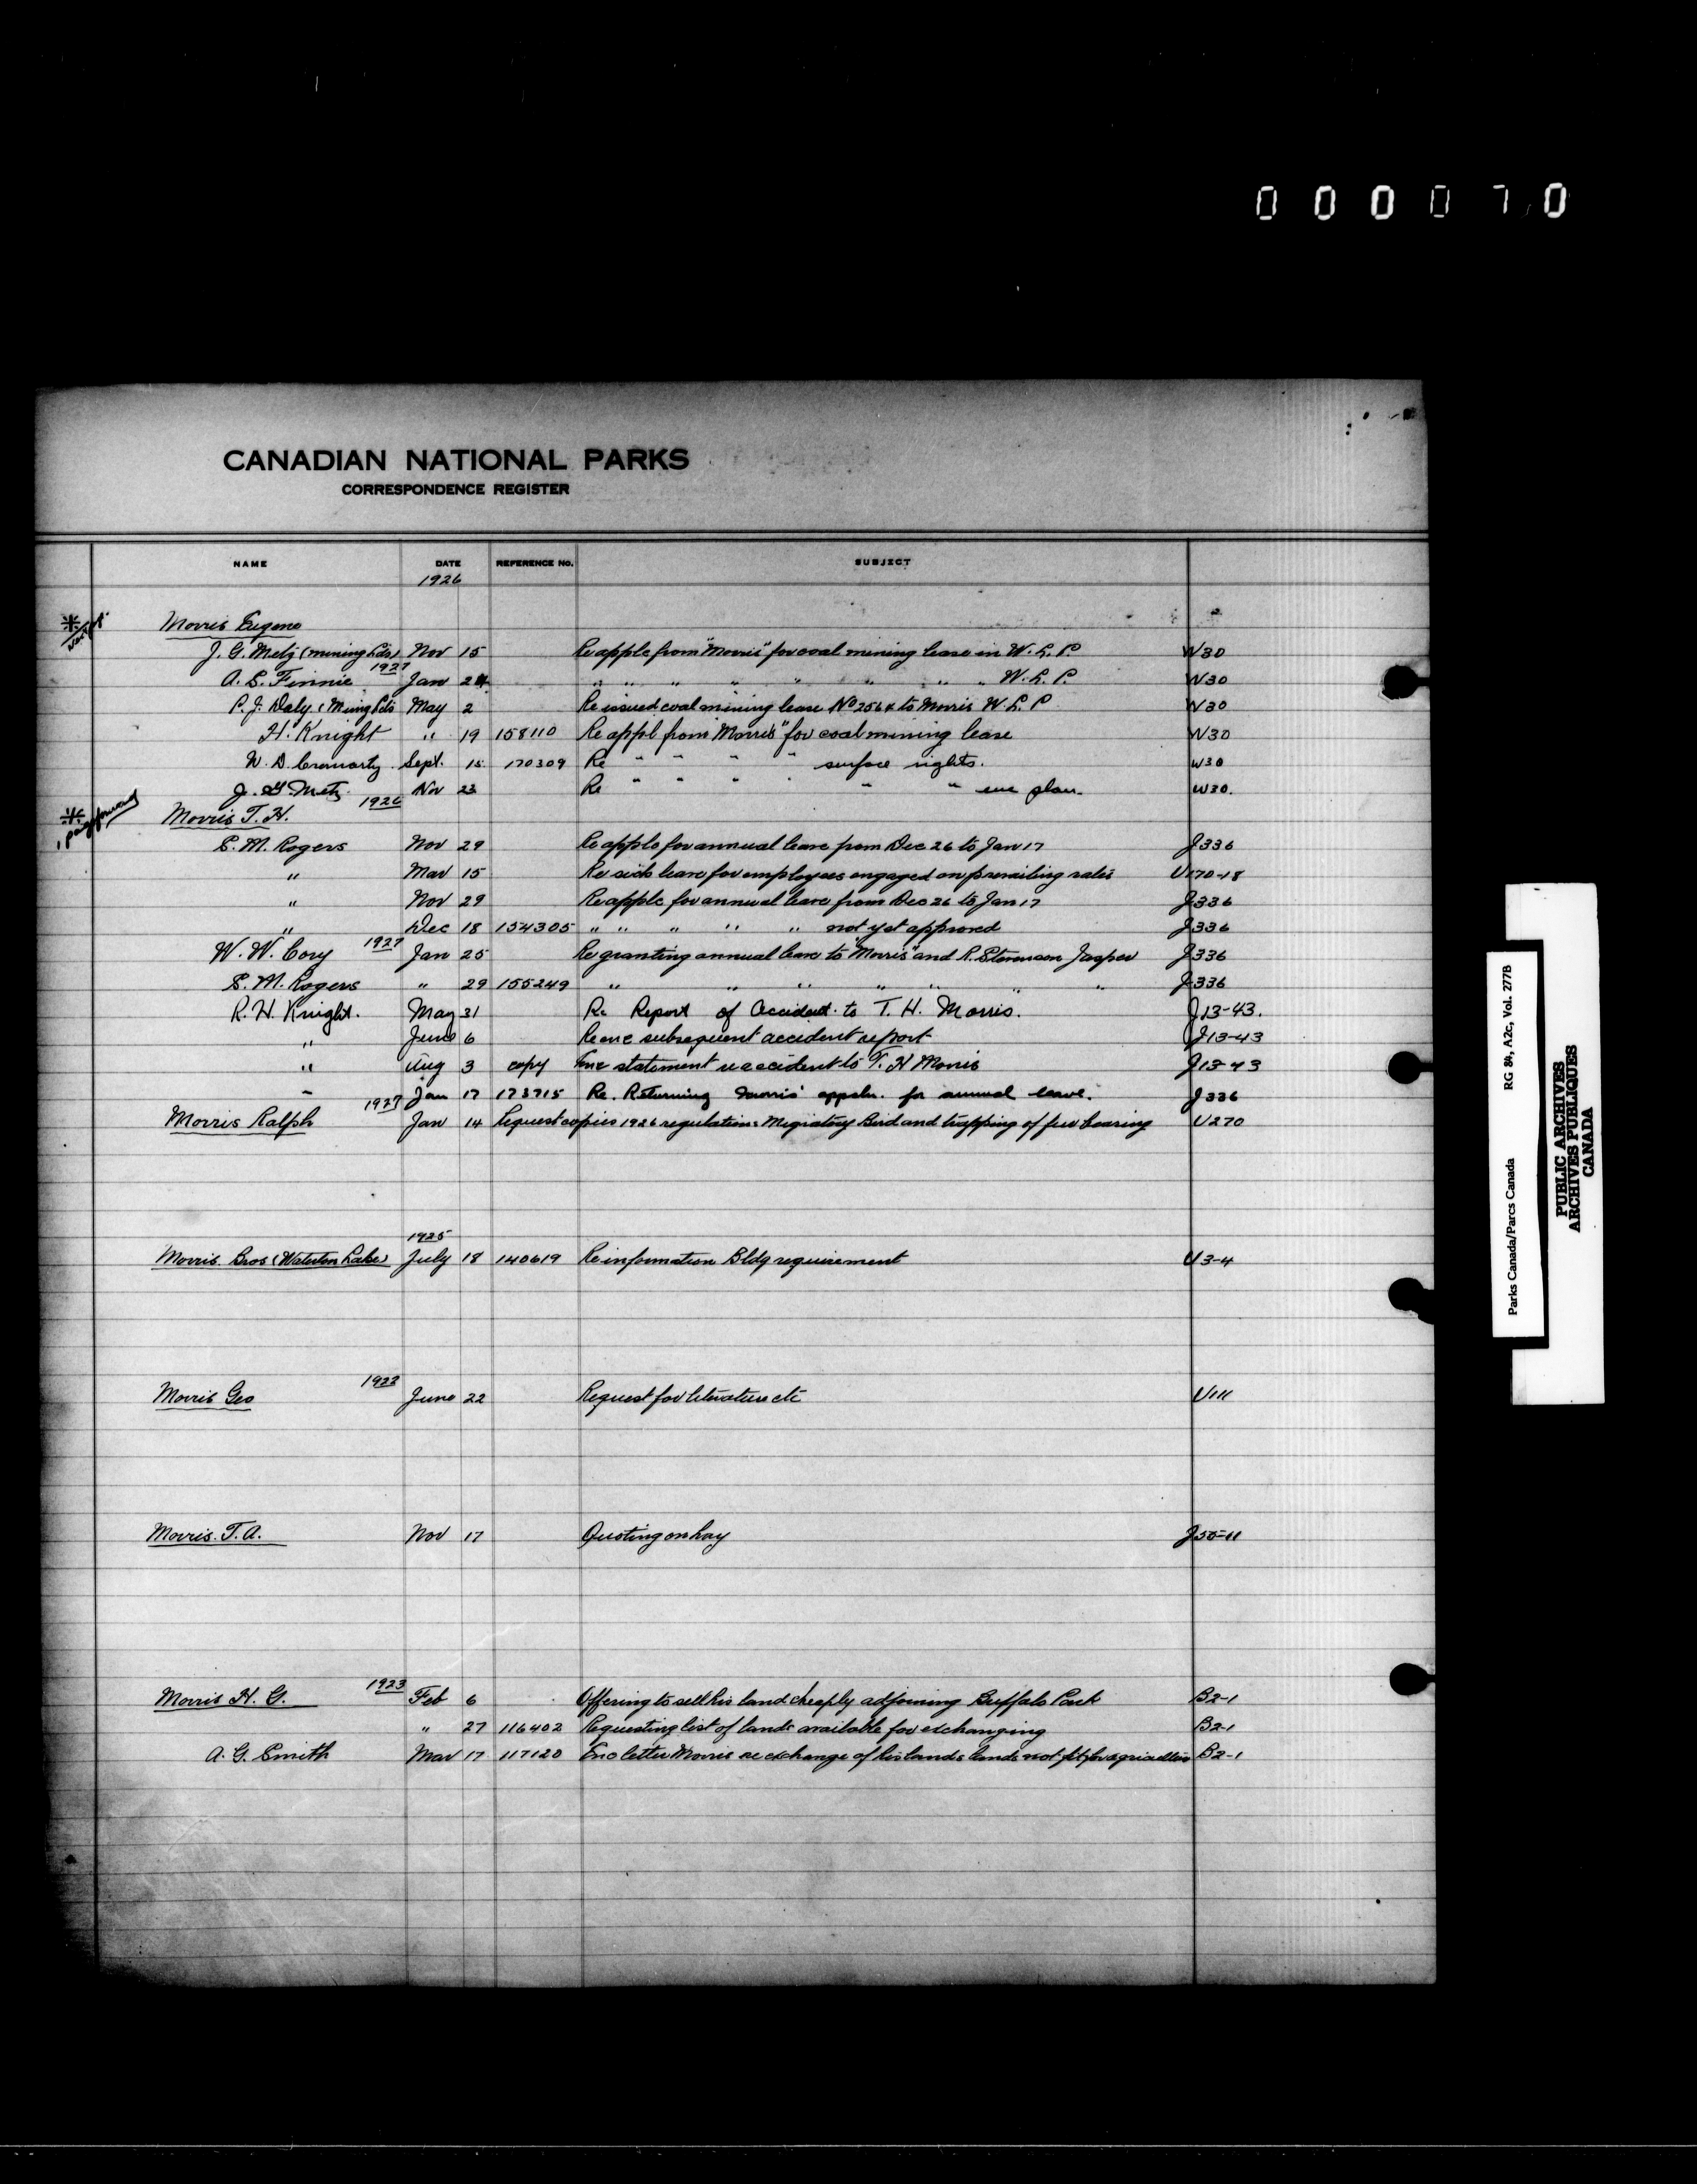 000070
CANADIAN NATIONAL PARKS
CORRESPONDENCE REGISTER
NAME DATE REFERENCE No. SUBJECT
1926
Morris Eugene
J. G. Metz (mining Lds) Nov 15 Re applc from "Morris" for coal mining lease in W. L. P. W30
1927
A. S. Finnie Jan 24 " " " " " " " " W. L. P. W30
P. J. Daly (Ming Lds May 2 Re issued coal mining lease No 2564 to Morris W. L. P W30
H. Knight " 19 158110 Re appl from "Morris" for coal mining lease W30
W. D. Cromarty Sept. 15 170309 Re " " " " surface rights. W30
J. G. Metz Nov 23 Re " " " " " enc plan. W30.
1926
Morris T. H.
1 page forward
S. M. Rogers Nov 29 Re applc for annual leave from Dec 26 to Jan 17 J336
" Mar 15 Re sick leave for employees engaged on prevailing rates U170-18
" Nov 29 Re applc for annual leave from Dec 26 to Jan 17 J336
" Dec 18 154305 " " " " " not yet approved J336
1927
W. W. Cory Jan 25 Re granting annual leave to "Morris" and R. Stevenson Jasper J336
S. M. Rogers " 29 155249 " " " " " " " J336
R. H. Knight. May 31 Re Report of Accident to T. H. Morris. J13-43.
" June 6 Re enc subsequent accident report J13-43
" Aug 3 copy Enc statement re accident to T. H Morris J13-43
" Jan 17 173715 Re. Returning Morris' appln. for annual leave. J336
1927
Morris Ralph Jan 14 Request copies 1926 regulations Migratory Bird and trapping of fur bearing U270
1925
Morris Bros (Waterton Lake) July 18 140619 Re information Bldg requirement U3-4
1923
Morris Geo June 22 Request for literature etc U111
Morris. T. A. Nov 17 Quoting on hay J50-11
1923
Morris H. G. Feb 6 Offering to sell his land cheaply adjoining Buffalo Park B2-1
" 27 116402 Requesting list of lands available for exchanging B2-1
A. G. Smith Mar 17 117120 Enc letter Morris re exchange of his lands lands not fit for B2-1
Parks Canada/Parcs Canada RG 84, A2c, Vol. 277B
PUBLIC ARCHIVES
ARCHIVES PUBLIQUES
CANADA